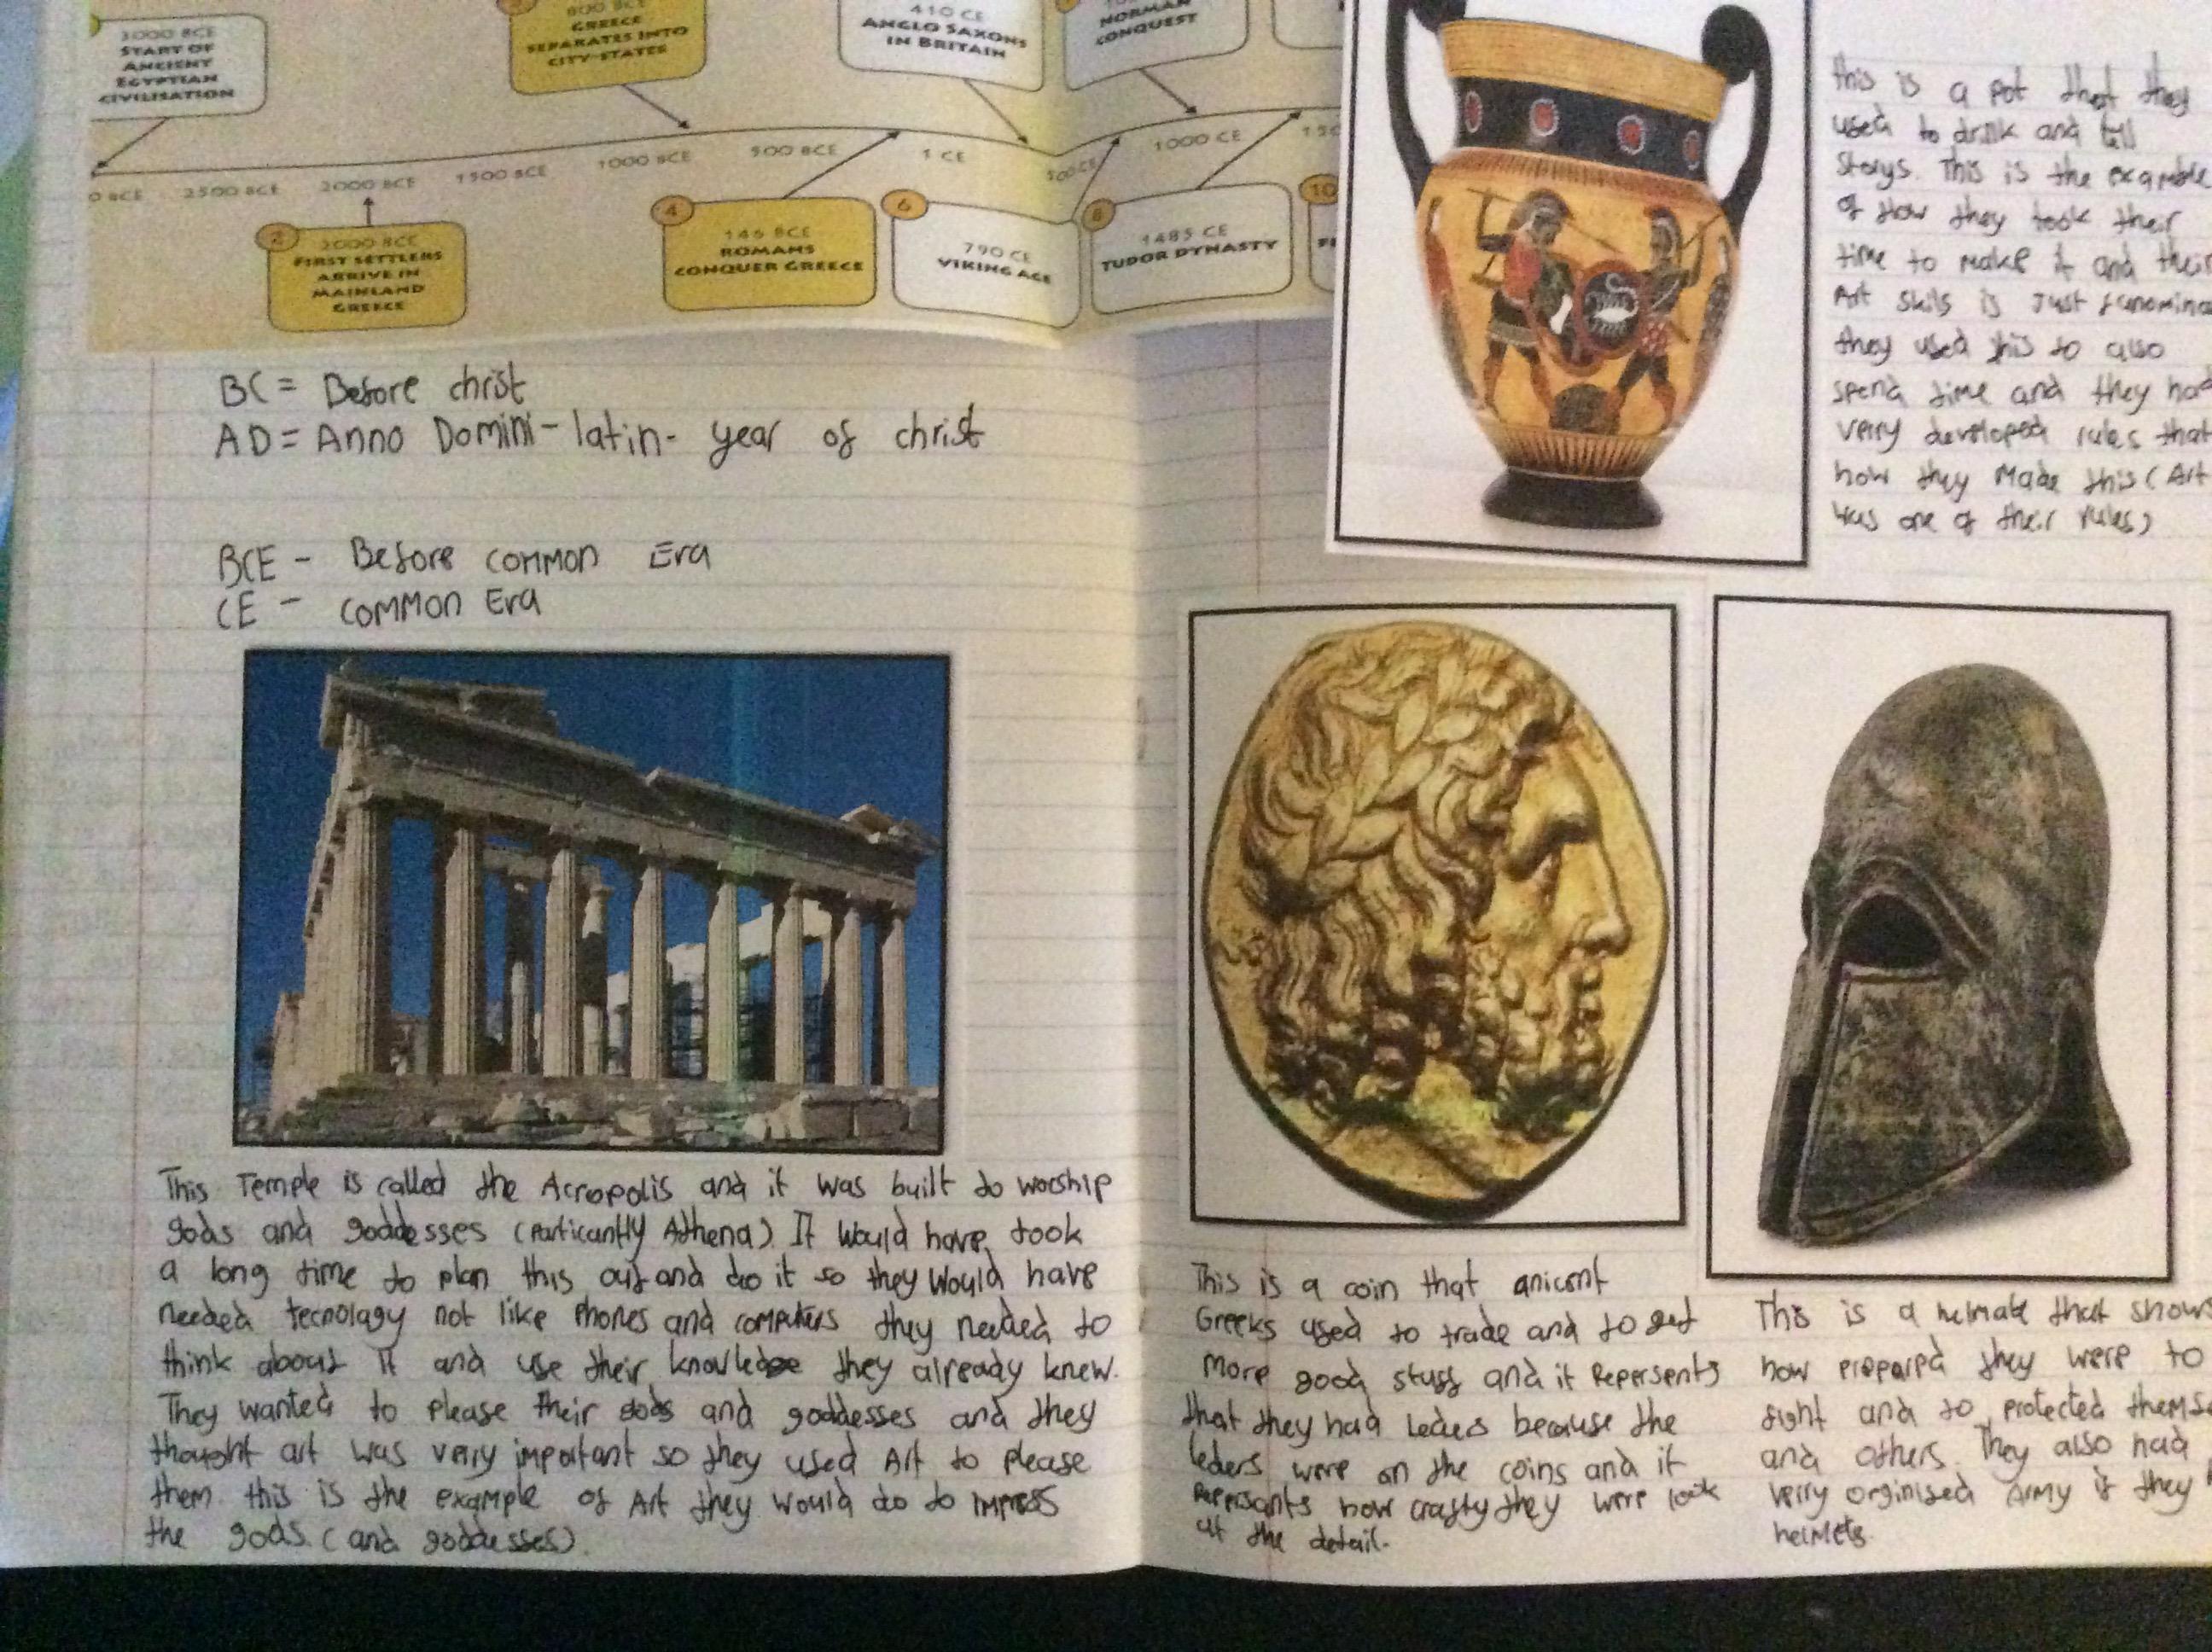 3000 BCE
START OF
ANCIENT
EGYPTIAN
CIVILISATION
800 BCE
GREECE
SEPARATES INTO
CITY-STATES
410 CE
ANGLO SAXONS
IN BRITAIN
NORMAN
CONQUEST
0 BCE 2500 BCE 2000 BCE 1500 BCE 1000 BCE 500 BCE 1 CE 500 CE 1000 CE 150
2
2000 BCE
FIRST SETTLERS
ARRIVE IN
MAINLAND
GREECE
4
146 BCE
ROMANS
CONQUER GREECE
6
790 CE
VIKING AGE
8
1485 CE
TUDOR DYNASTY
10
BC = Before christ
AD = Anno Domini - latin - year of christ
BCE - Before common Era
CE - common Era
This Temple is called the Acropolis and it was built to worship
gods and goddesses (Particantly Athena). It would have took
a long time to plan this out and do it so they would have
needed tecnolagy not like Phones and computers they needed to
think about it and use their knowledge they already knew.
They wanted to please their gods and goddesses and they
thought art was verry important so they used Art to please
them this is the example of Art they would do to impress
the gods. (and goddesses).
this is a pot that they
used to drink and tell
storys. This is the example
of how they took their
time to make it and their
Art skils is Just fenomina
they used this to also
spend time and they had
verry developed rules that
how they Made this (Art
was one of their rules)
This is a coin that anicent
Greeks used to trade and to get
more good stuff and it Repersents
that they had leders because the
leders were on the coins and it
repersants how crafty they were look
at the detail.
This is a helmate that shows
how prepared they were to
fight and to protected themse
and others. They also had
verry orginised army if they
helmets.